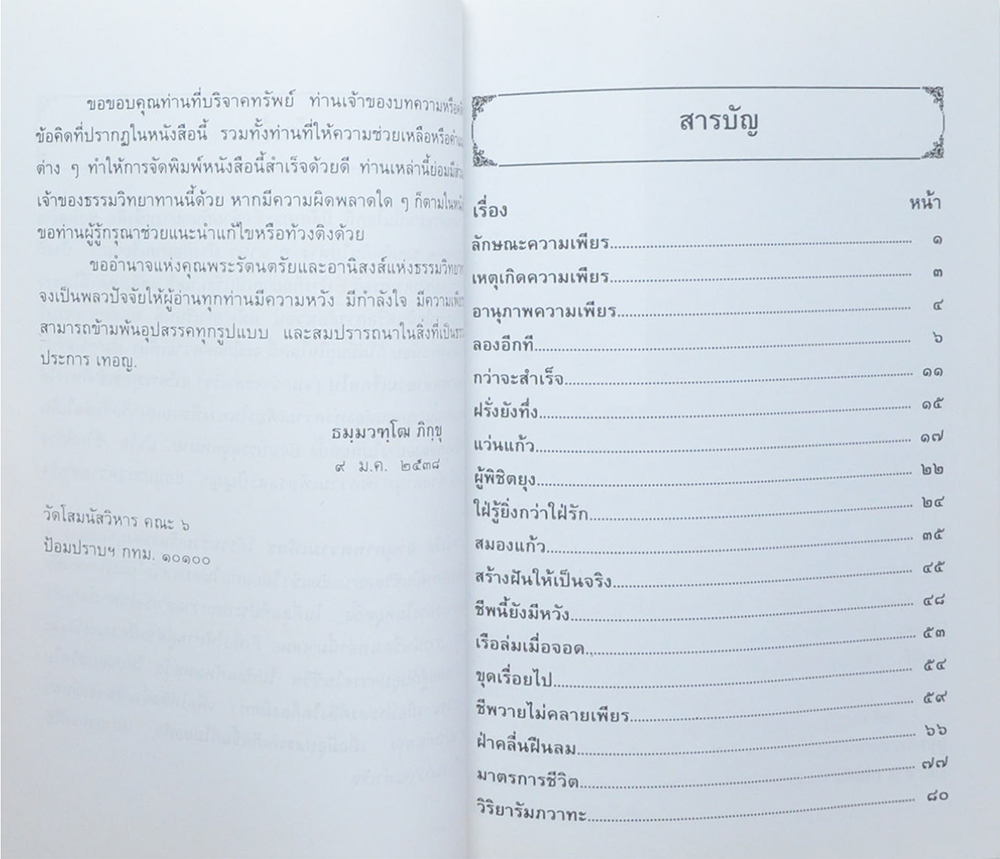 ขอขอบคุณท่านที่บริจาคทรัพย์ ท่านเจ้าของบทความหรือ
ข้อคิดที่ปรากฏในหนังสือนี้ รวมทั้งท่านที่ให้ความช่วยเหลือหรือ
ต่าง ๆ ทำให้การจัดพิมพ์หนังสือนี้สำเร็จด้วยดี ท่านเหล่านี้ย่อมมี
เจ้าของธรรมวิทยาทานนี้ด้วย หากมีความผิดพลาดใด ๆ ก็ตามใน
ขอท่านผู้รู้กรุณาช่วยแนะนำแก้ไขหรือท้วงติงด้วย
ขออำนาจแห่งคุณพระรัตนตรัยและอานิสงส์แห่งธรรมวิทยา
จงเป็นพลวปัจจัยให้ผู้อ่านทุกท่านมีความหวัง มีกำลังใจ มีความ
สามารถข้ามพ้นอุปสรรคทุกรูปแบบ และสมปรารถนาในสิ่งที่เป็น
ประการ เทอญ.
ธมฺมวฑฺโฒ ภิกฺขุ
๙ ม.ค. ๒๕๓๘
วัดโสมนัสวิหาร คณะ ๖
ป้อมปราบฯ กทม. ๑๐๑๐๐
สารบัญ
เรื่อง หน้า
ลักษณะความเพียร ๑
เหตุเกิดความเพียร ๓
อานุภาพความเพียร ๔
ลองอีกที ๖
กว่าจะสำเร็จ ๑๑
ฝรั่งยังทึ่ง ๑๕
แว่นแก้ว ๑๗
ผู้พิชิตยุง ๒๒
ใฝ่รู้ยิ่งกว่าใฝ่รัก ๒๔
สมองแก้ว ๓๕
สร้างฝันให้เป็นจริง ๔๕
ชีพนี้ยังมีหวัง ๔๘
เรือล่มเมื่อจอด ๕๓
ขุดเรื่อยไป ๕๔
ชีพวายไม่คลายเพียร ๕๙
ฝ่าคลื่นฝืนลม ๖๖
มาตรการชีวิต ๗๗
วิริยารัมภวาทะ ๘๐